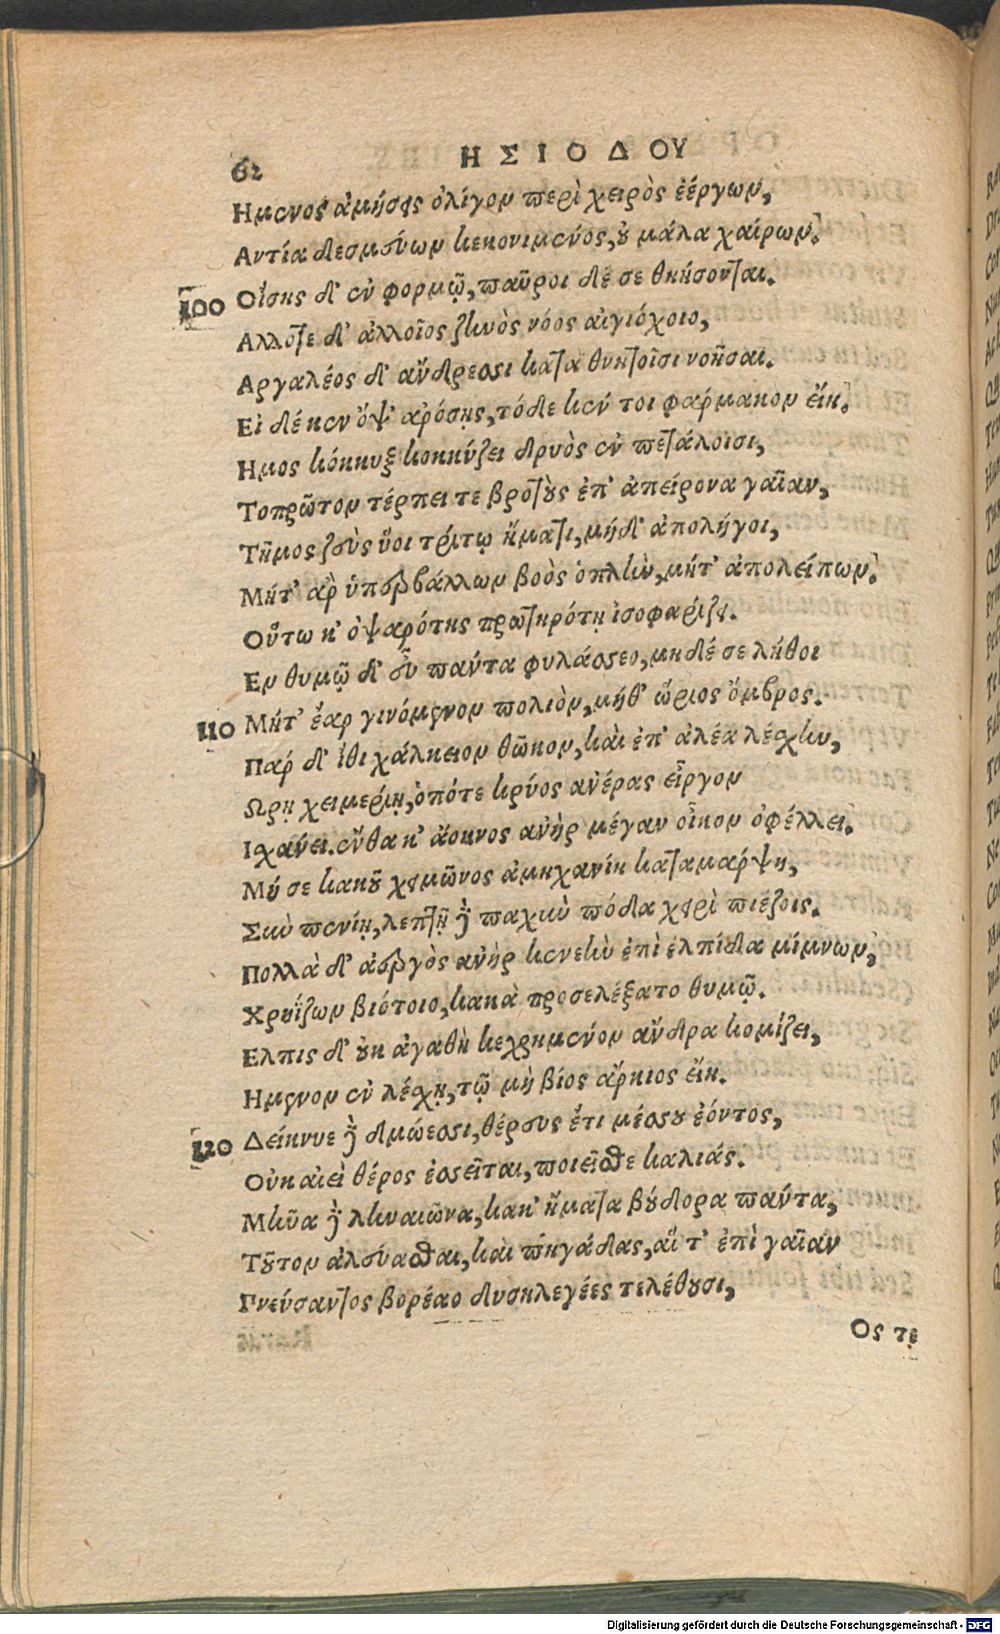 62 ΗΣΙΟΔΟΥ
Ημενος ἀμήσεις ὀλίγον περὶ χειρὸς ἐέργων,
Αντία δεσμεύων κεκονιμένος, οὐ μάλα χαίρων.
100 Οἴσῃς δ' ἐν φορμῷ, παῦροι δέ σε θηήσονται.
Αλλοτε δ' ἀλλοῖος ζηνὸς νόος αἰγιόχοιο,
Αργαλέος δ' ἄνδρεσσι καταθνητοῖσι νοῆσαι.
Εἰ δέ κεν ὄψ' ἀρόσῃς, τόδε κέν τοι φάρμακον εἴη.
Ημος κόκκυξ κοκκύζει δρυὸς ἐν πετάλοισι,
Τοπρῶτον τέρπει τε βροτοὺς ἐπ' ἀπείρονα γαῖαν,
Τῆμος ζεὺς ὕοι τρίτῳ ἤματι, μήδ' ἀπολήγοι,
Μήτ' ἂρ ὑπερβάλλων βοὸς ὁπλὴν, μήτ' ἀπολείπων.
Οὕτω κ' ὀψαρότης πρωτηρότῃ ἰσοφαρίζει.
Εν θυμῷ δ' εὖ πάντα φυλάσσεο, μηδέ σε λήθοι
110 Μήτ' ἔαρ γινόμενον πολιὸν, μήθ' ὥριος ὄμβρος.
Παρ δ' ἴθι χάλκειον θῶκον, καὶ ἐπ' ἀλέα λέσχην,
Ωρῃ χειμερίῃ, ὁπότε κρύος ἀνέρας εἶργον
Ισχάνει. ἔνθα κ' ἄοκνος ἀνὴρ μέγαν οἶκον ὀφέλλει.
Μή σε κακοῦ χειμῶνος ἀμηχανίη καταμάρψῃ,
Σὺν πενίῃ, λεπτῇ δὲ παχὺν πόδα χειρὶ πιέζοις.
Πολλὰ δ' ἀεργὸς ἀνὴρ κενεὴν ἐπὶ ἐλπίδα μίμνων,
Χρηΐζων βιότοιο, κακὰ προσελέξατο θυμῷ.
Ελπις δ' οὐκ ἀγαθὴ κεχρημένον ἄνδρα κομίζει,
Ημενον ἐν λέσχῃ, τῷ μὴ βίος ἄρκιος εἴη.
120 Δείκνυε δὲ δμώεσσι, θέρευς ἔτι μέσσου ἐόντος,
Οὐκ αἰεὶ θέρος ἐσσεῖται, ποιεῖσθε καλιάς.
Μῆνα δὲ ληναιῶνα, κακ' ἤματα βούδορα πάντα,
Τοῦτον ἀλεύασθαι, καὶ πηγάδας, αἵ τ' ἐπὶ γαῖαν
Πνεύσαντος βορέαο δυσηλεγέες τελέθουσι,
Ος τε
Digitalisierung gefördert durch die Deutsche Forschungsgemeinschaft - DFG